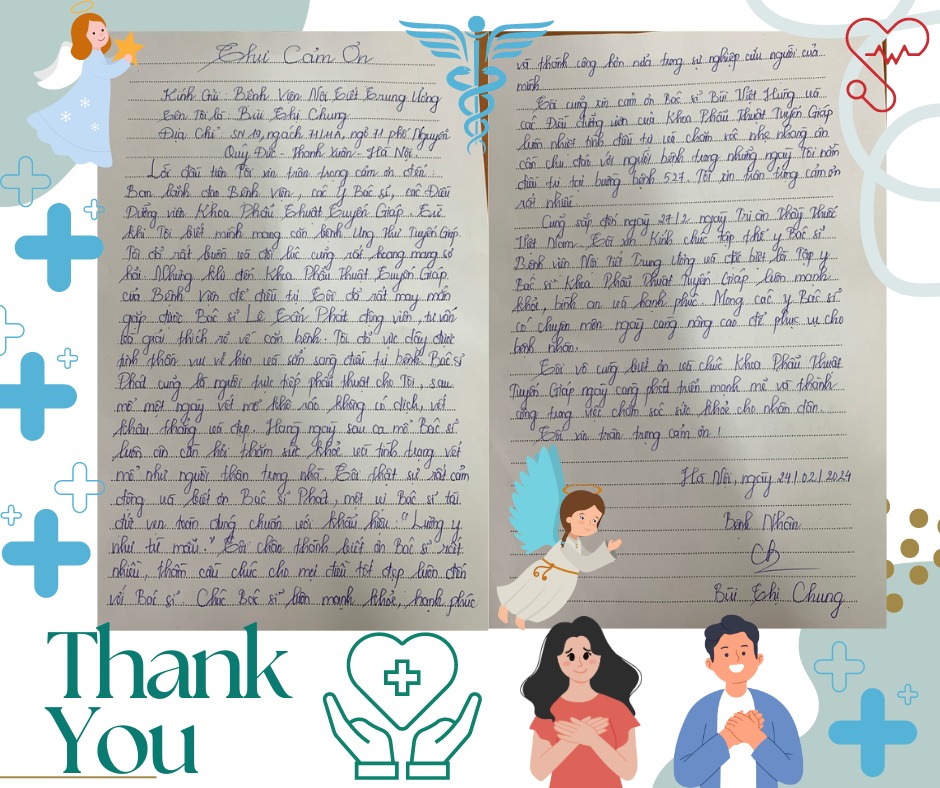 Thư Cảm Ơn
Kính Gửi: Bệnh Viện Nội Tiết Trung Ương
Tên Tôi là: Bùi Thị Chung
Địa Chỉ SN 19, ngách 71/14A, ngõ 71 phố Nguyễn
Quý Đức - Thanh Xuân - Hà Nội.
Lời đầu tiên Tôi xin trân trọng cảm ơn đến:
Ban lãnh đạo Bệnh Viện, các y Bác sĩ, các Điều
Dưỡng viên Khoa Phẫu Thuật Tuyến Giáp. Từ
khi Tôi biết mình mang căn bệnh Ung Thư Tuyến Giáp
Tôi đã rất buồn và đôi lúc cũng rất hoang mang sợ
hãi. Nhưng khi đến Khoa Phẫu Thuật Tuyến Giáp
của Bệnh Viện để điều trị Tôi đã rất may mắn
gặp được Bác Sĩ Lê Tấn Phát động viên, tư vấn
và giải thích rõ về căn bệnh. Tôi đã vực dậy được
tinh thần, vui vẻ hơn và sẵn sàng điều trị bệnh. Bác sĩ
Phát cũng là người trực tiếp phẫu thuật cho Tôi, sau
mổ một ngày vết mổ khô ráo không có dịch, vết
khâu thẳng và đẹp. Hàng ngày sau ca mổ Bác sĩ
luôn ân cần hỏi thăm sức khoẻ và tình trạng vết
mổ như người thân trong nhà. Tôi thật sự rất cảm
động và biết ơn Bác sĩ Phát, một vị Bác sĩ tài
đức vẹn toàn đúng chuẩn với khẩu hiệu: "Lương y
như từ mẫu." Tôi chân thành biết ơn Bác sĩ rất
nhiều, thầm cầu chúc cho mọi điều tốt đẹp luôn đến
với Bác sĩ. Chúc Bác sĩ luôn mạnh khoẻ, hạnh phúc
và thành công hơn nữa trong sự nghiệp cứu người của
mình.
Tôi cũng xin cảm ơn Bác sĩ Bùi Việt Hưng và
các Điều dưỡng viên của Khoa Phẫu Thuật Tuyến Giáp
luôn nhiệt tình điều trị và chăm sóc nhẹ nhàng ân
cần chu đáo với người bệnh trong những ngày Tôi nằm
điều trị tại buồng bệnh 527. Tôi xin trân trọng cảm ơn
rất nhiều.
Cũng sắp đến ngày 27/2 ngày Tri ân Thầy Thuốc
Việt Nam. Tôi xin Kính chúc tập thể y Bác sĩ
Bệnh viện Nội Tiết Trung Ương và đặc biệt là Tập y
Bác sĩ Khoa Phẫu Thuật Tuyến Giáp luôn mạnh
khoẻ, bình an và hạnh phúc. Mong các y Bác sĩ
có chuyên môn ngày càng nâng cao để phục vụ cho
bệnh nhân.
Tôi vô cùng biết ơn và chúc Khoa Phẫu Thuật
Tuyến Giáp ngày càng phát triển mạnh mẽ và thành
công trong việc chăm sóc sức khoẻ cho nhân dân.
Tôi xin trân trọng cảm ơn!
Hà Nội, ngày 24/02/2024
Bệnh Nhân
Ch
Bùi Thị Chung
Thank
You